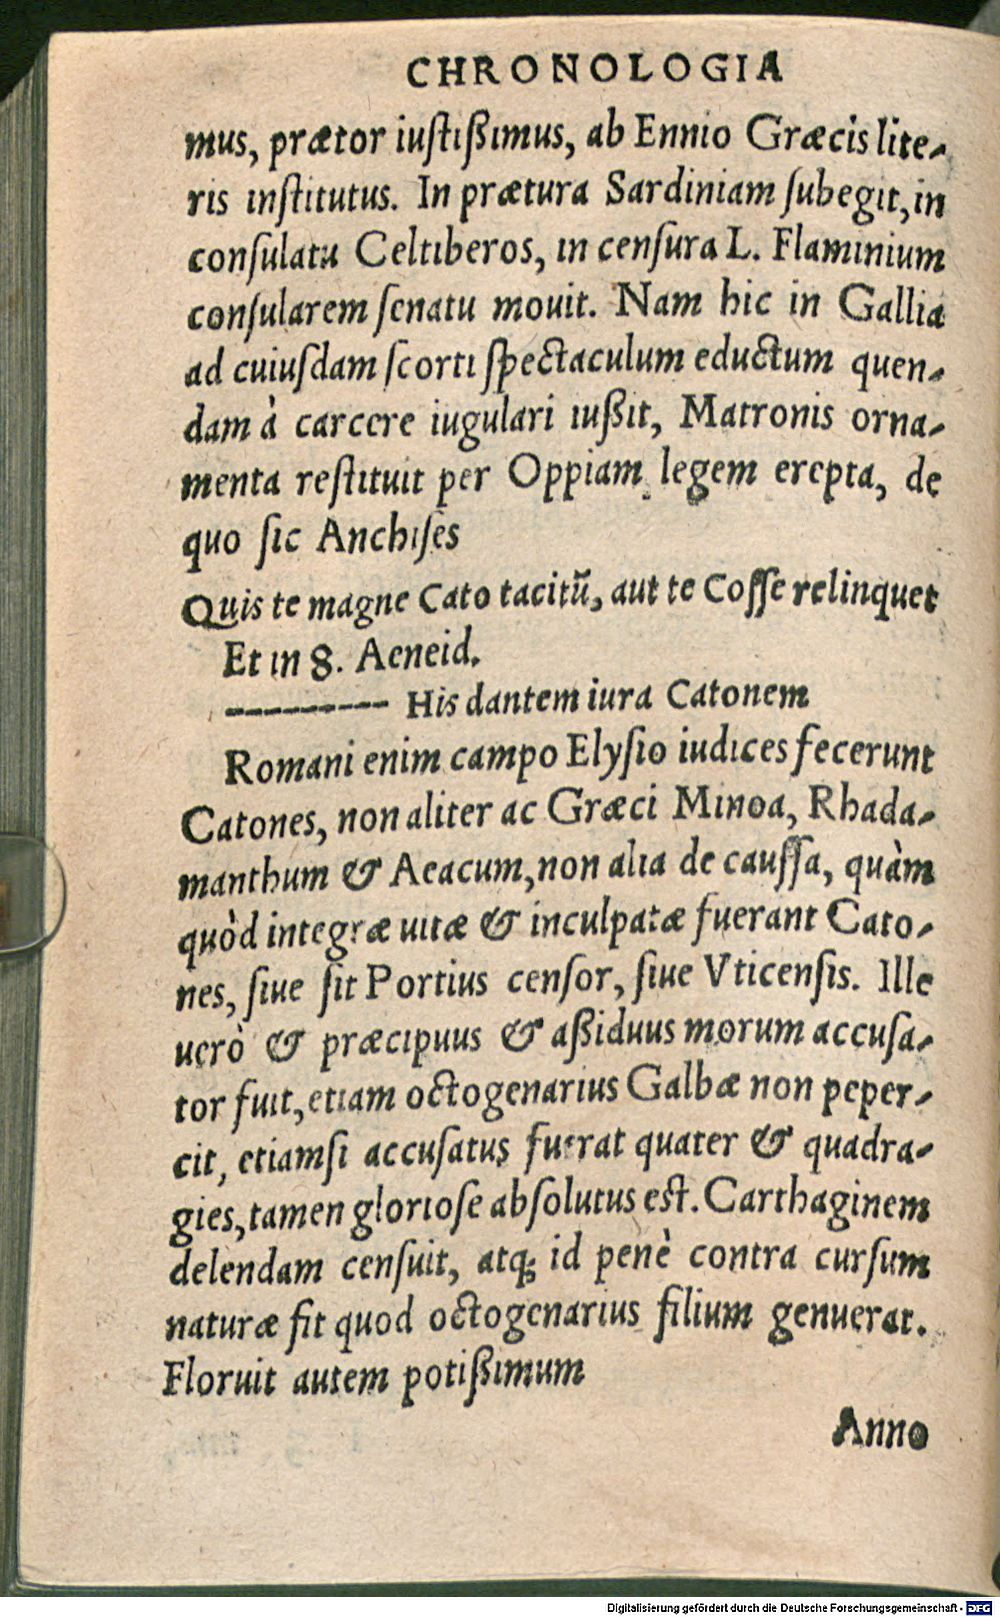 CHRONOLOGIA
mus, prætor iustißimus, ab Ennio Græcis lite-
ris institutus. In prætura Sardiniam ſubegit, in
conſulatu Celtiberos, in cenſura L. Flaminium
conſularem ſenatu mouit. Nam hic in Gallia
ad cuiuſdam ſcorti ſpectaculum eductum quen-
dam à carcere iugulari iußit, Matronis orna-
menta reſtituit per Oppiam legem erepta, de
quo ſic Anchiſes
Quis te magne Cato tacitū, aut te Coſſe relinquet
Et in 8. Aeneid.
--------- His dantem iura Catonem
Romani enim campo Elyſio iudices fecerunt
Catones, non aliter ac Græci Minoa, Rhada-
manthum & Aeacum, non alia de cauſſa, quàm
quòd integræ uitæ & inculpatæ fuerant Cato-
nes, ſiue ſit Portius cenſor, ſiue Vticenſis. Ille
uerò & præcipuus & aßiduus morum accuſa-
tor fuit, etiam octogenarius Galbæ non peper-
cit, etiamſi accuſatus fuerat quater & quadra-
gies, tamen glorioſe abſolutus eſt. Carthaginem
delendam cenſuit, atq; id penè contra curſum
naturæ fit quod octogenarius filium genuerat.
Floruit autem potißimum
Anno
Digitalisierung gefördert durch die Deutsche Forschungsgemeinschaft - DFG